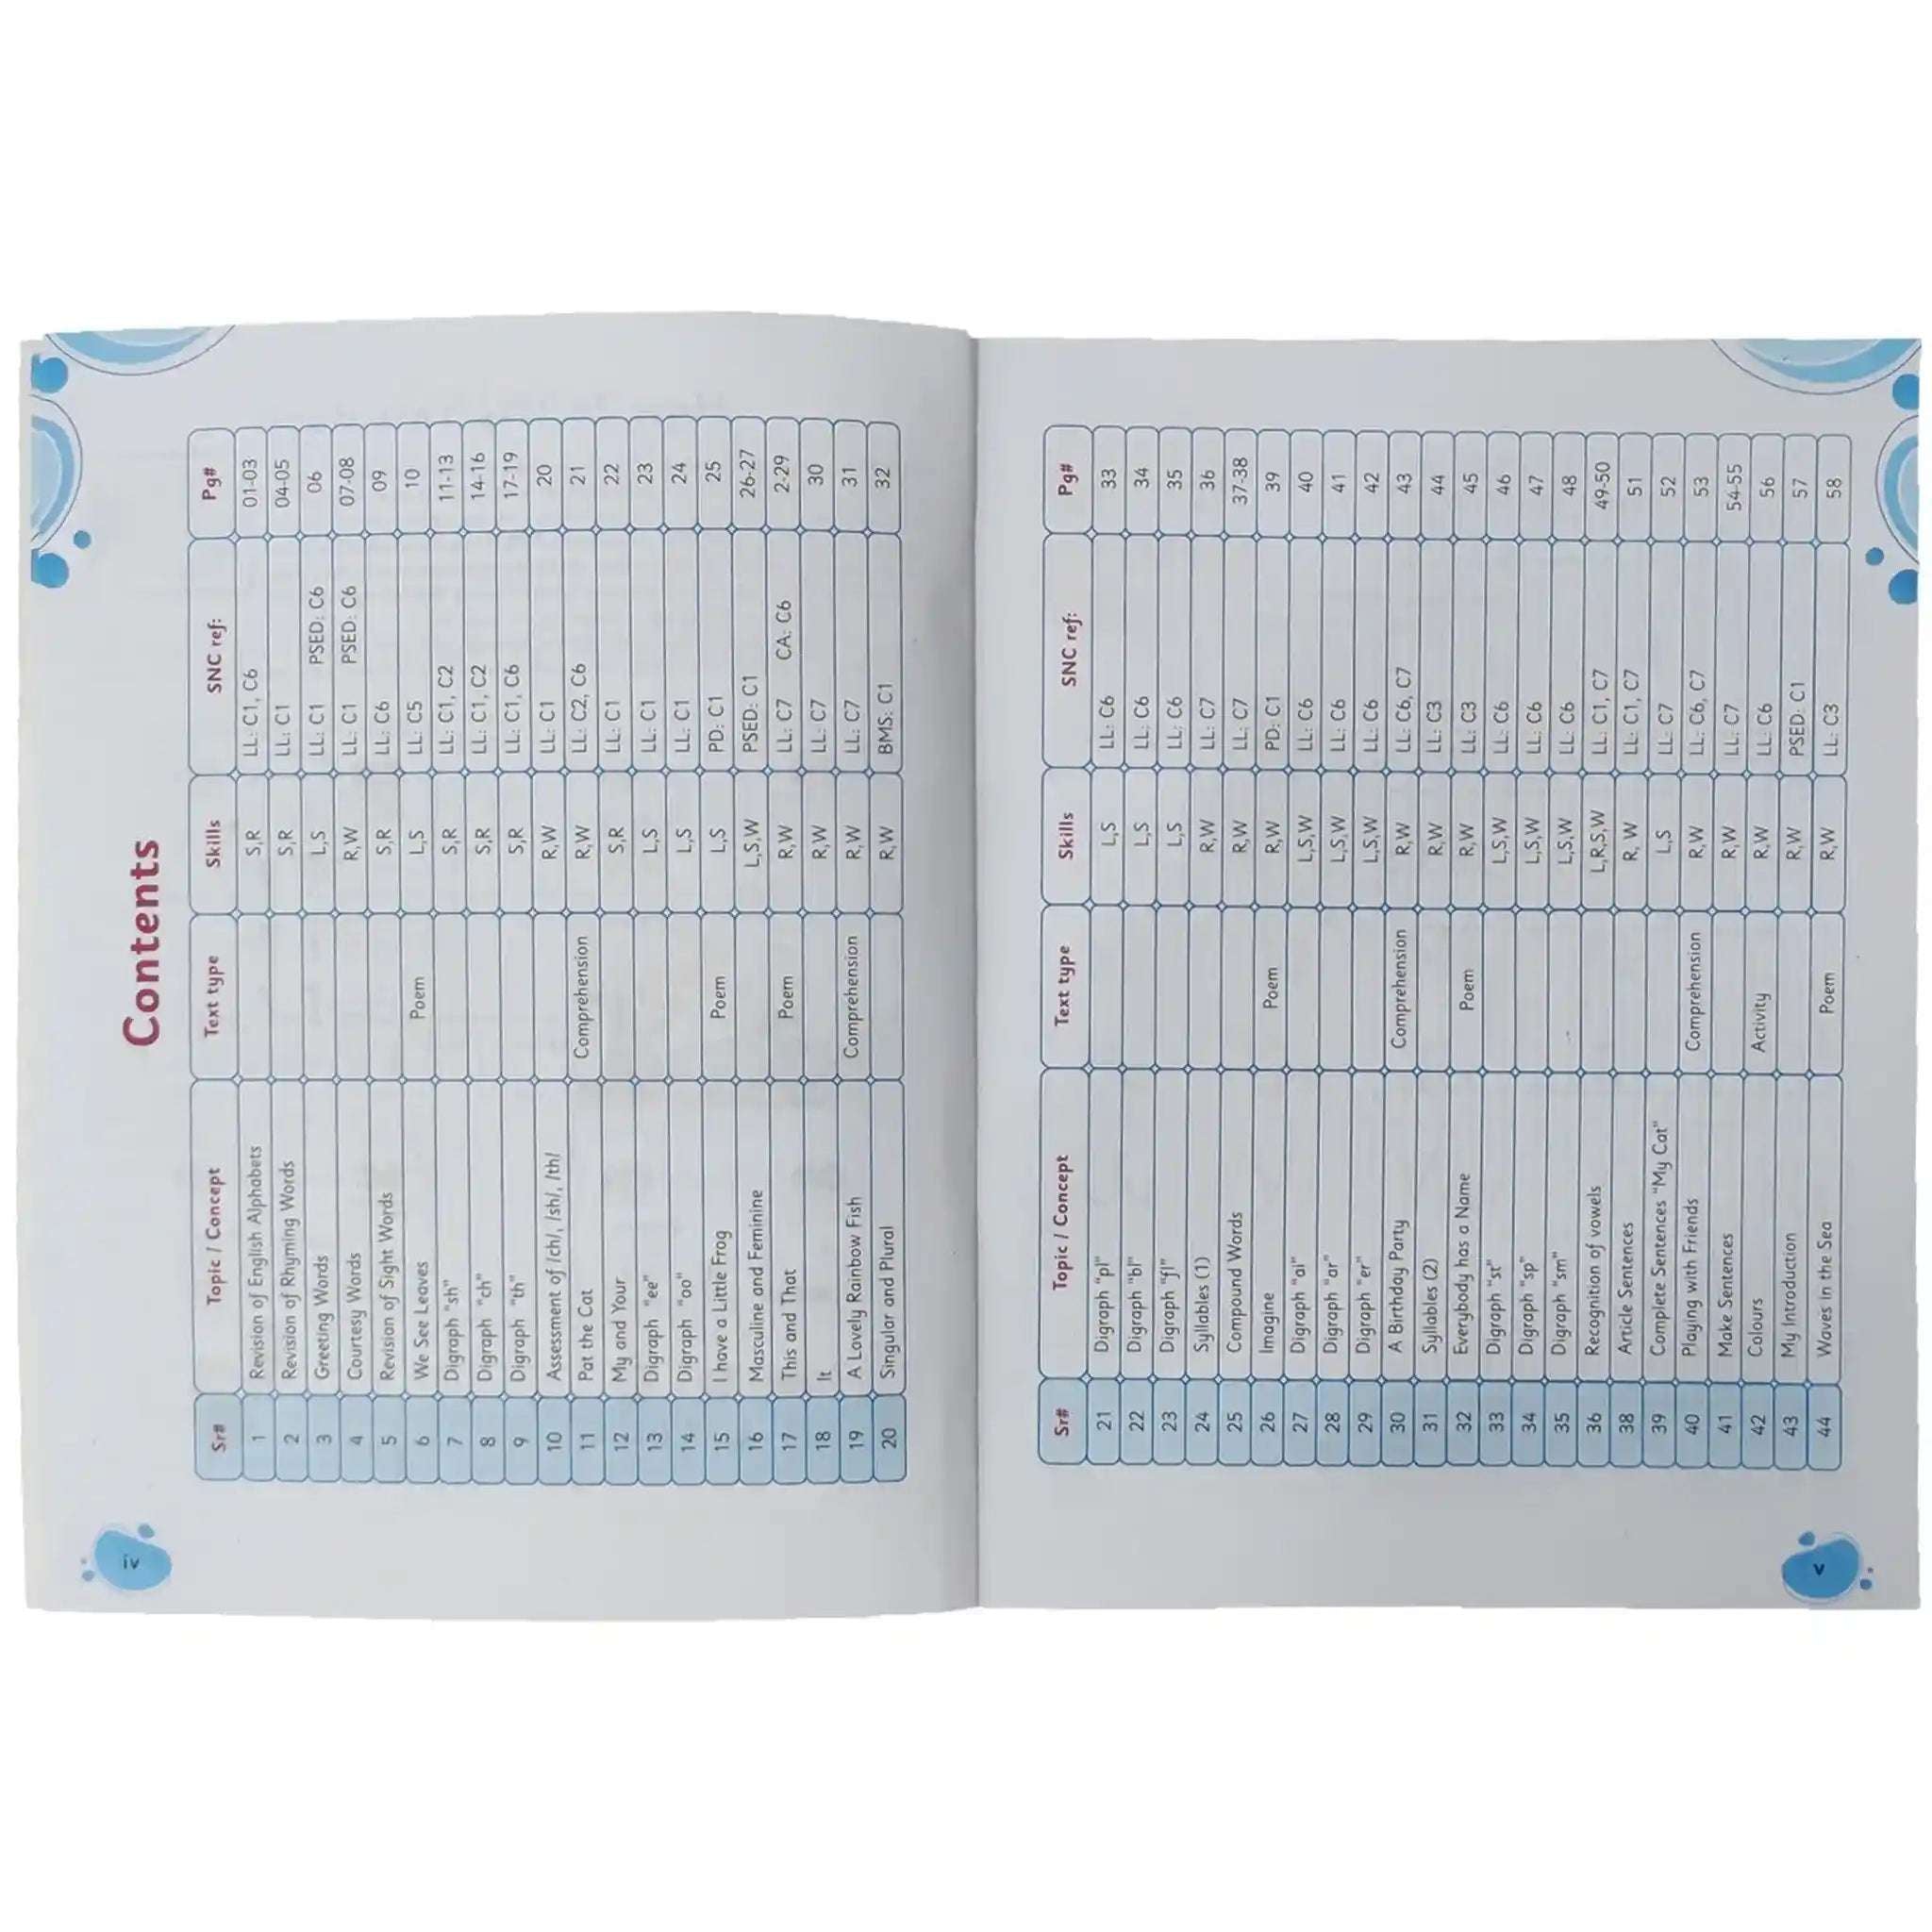 Contents
Sr# Topic / Concept Text type Skills SNC ref: Pg#
1 Revision of English Alphabets S,R LL: C1, C6 01-03
2 Revision of Rhyming Words S,R LL: C1 04-05
3 Greeting Words L,S LL: C1 PSED: C6 06
4 Courtesy Words R,W LL: C1 PSED: C6 07-08
5 Revision of Sight Words S,R LL: C6 09
6 We See Leaves Poem L,S LL: C5 10
7 Digraph "sh" S,R LL: C1, C2 11-13
8 Digraph "ch" S,R LL: C1, C2 14-16
9 Digraph "th" S,R LL: C1, C6 17-19
10 Assessment of /ch/, /sh/, /th/ R,W LL: C1 20
11 Pat the Cat Comprehension R,W LL: C2, C6 21
12 My and Your S,R LL: C1 22
13 Digraph "ee" L,S LL: C1 23
14 Digraph "oo" L,S LL: C1 24
15 I have a Little Frog Poem L,S PD: C1 25
16 Masculine and Feminine L,S,W PSED: C1 26-27
17 This and That Poem R,W LL: C7 CA: C6 2-29
18 It R,W LL: C7 30
19 A Lovely Rainbow Fish Comprehension R,W LL: C7 31
20 Singular and Plural R,W BMS: C1 32
iv
Sr# Topic / Concept Text type Skills SNC ref: Pg#
21 Digraph "pl" L,S LL: C6 33
22 Digraph "bl" L,S LL: C6 34
23 Digraph "fl" L,S LL: C6 35
24 Syllables (1) R,W LL: C7 36
25 Compound Words R,W LL: C7 37-38
26 Imagine Poem R,W PD: C1 39
27 Digraph "ai" L,S,W LL: C6 40
28 Digraph "ar" L,S,W LL: C6 41
29 Digraph "er" L,S,W LL: C6 42
30 A Birthday Party Comprehension R,W LL: C6, C7 43
31 Syllables (2) R,W LL: C3 44
32 Everybody has a Name Poem R,W LL: C3 45
33 Digraph "st" L,S,W LL: C6 46
34 Digraph "sp" L,S,W LL: C6 47
35 Digraph "sm" L,S,W LL: C6 48
36 Recognition of vowels L,R,S,W LL: C1, C7 49-50
38 Article Sentences R, W LL: C1, C7 51
39 Complete Sentences "My Cat" L,S LL: C7 52
40 Playing with Friends Comprehension R,W LL: C6, C7 53
41 Make Sentences R,W LL: C7 54-55
42 Colours Activity R,W LL: C6 56
43 My Introduction R,W PSED: C1 57
44 Waves in the Sea Poem R,W LL: C3 58
v